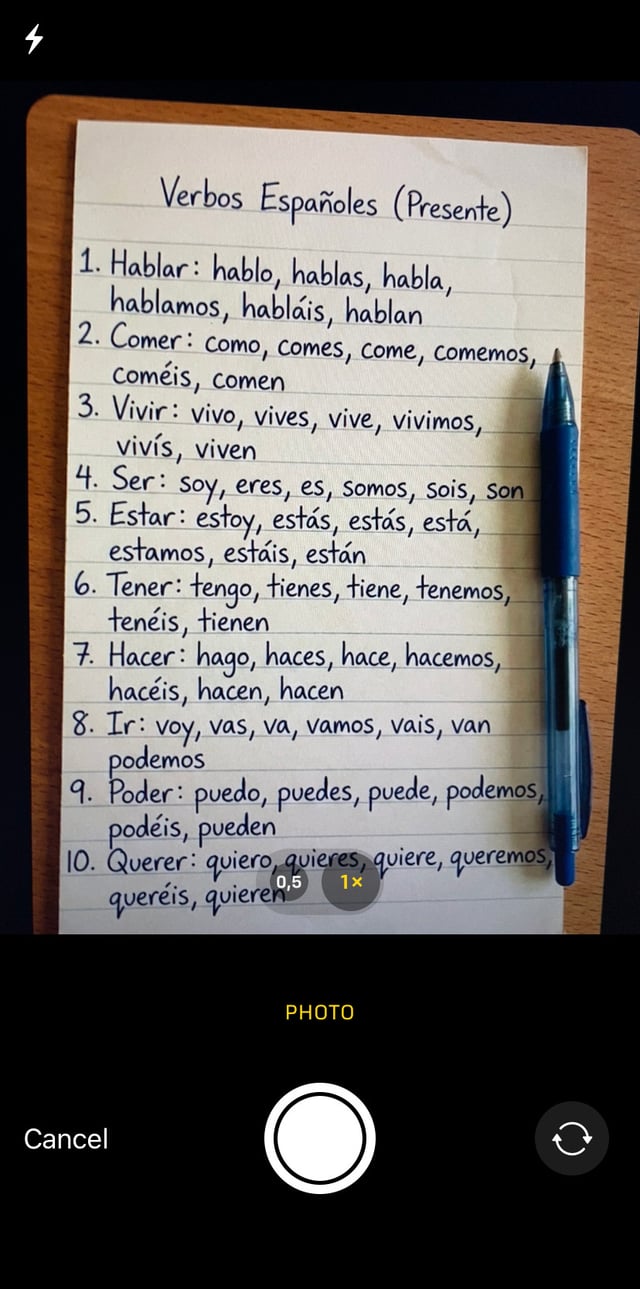 Verbos Españoles (Presente)
1. Hablar: hablo, hablas, habla,
hablamos, habláis, hablan
2. Comer: como, comes, come, comemos,
coméis, comen
3. Vivir: vivo, vives, vive, vivimos,
vivís, viven
4. Ser: soy, eres, es, somos, sois, son
5. Estar: estoy, estás, estás, está,
estamos, estáis, están
6. Tener: tengo, tienes, tiene, tenemos,
tenéis, tienen
7. Hacer: hago, haces, hace, hacemos,
hacéis, hacen, hacen
8. Ir: voy, vas, va, vamos, vais, van
podemos
9. Poder: puedo, puedes, puede, podemos,
podéis, pueden
10. Querer: quiero, quieres, quiere, queremos,
queréis, quieren
0,5 1×
PHOTO
Cancel